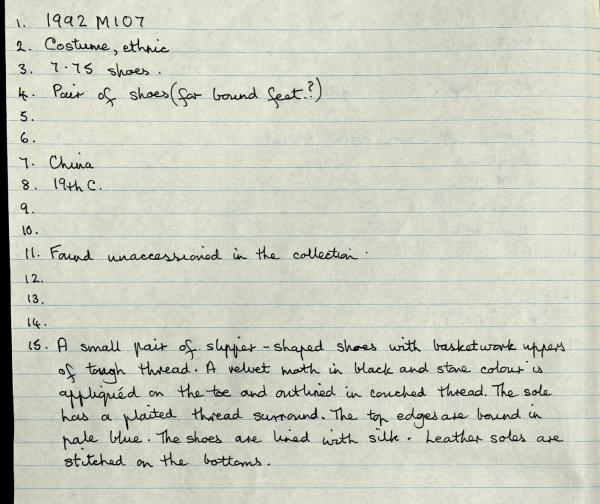 1. 1992 M107
2. Costume, ethnic
3. 7.75 shoes.
4. Pair of shoes (for bound feet?)
5.
6.
7. China
8. 19th C.
9.
10.
11. Found unaccessioned in the collection.
12.
13.
14.
15. A small pair of slipper-shaped shoes with basketwork uppers
of tough thread. A velvet moth in black and stone colour is
appliquéd on the toe and outlined in couched thread. The sole
has a plaited thread surround. The top edges are bound in
pale blue. The shoes are lined with silk. Leather soles are
stitched on the bottoms.